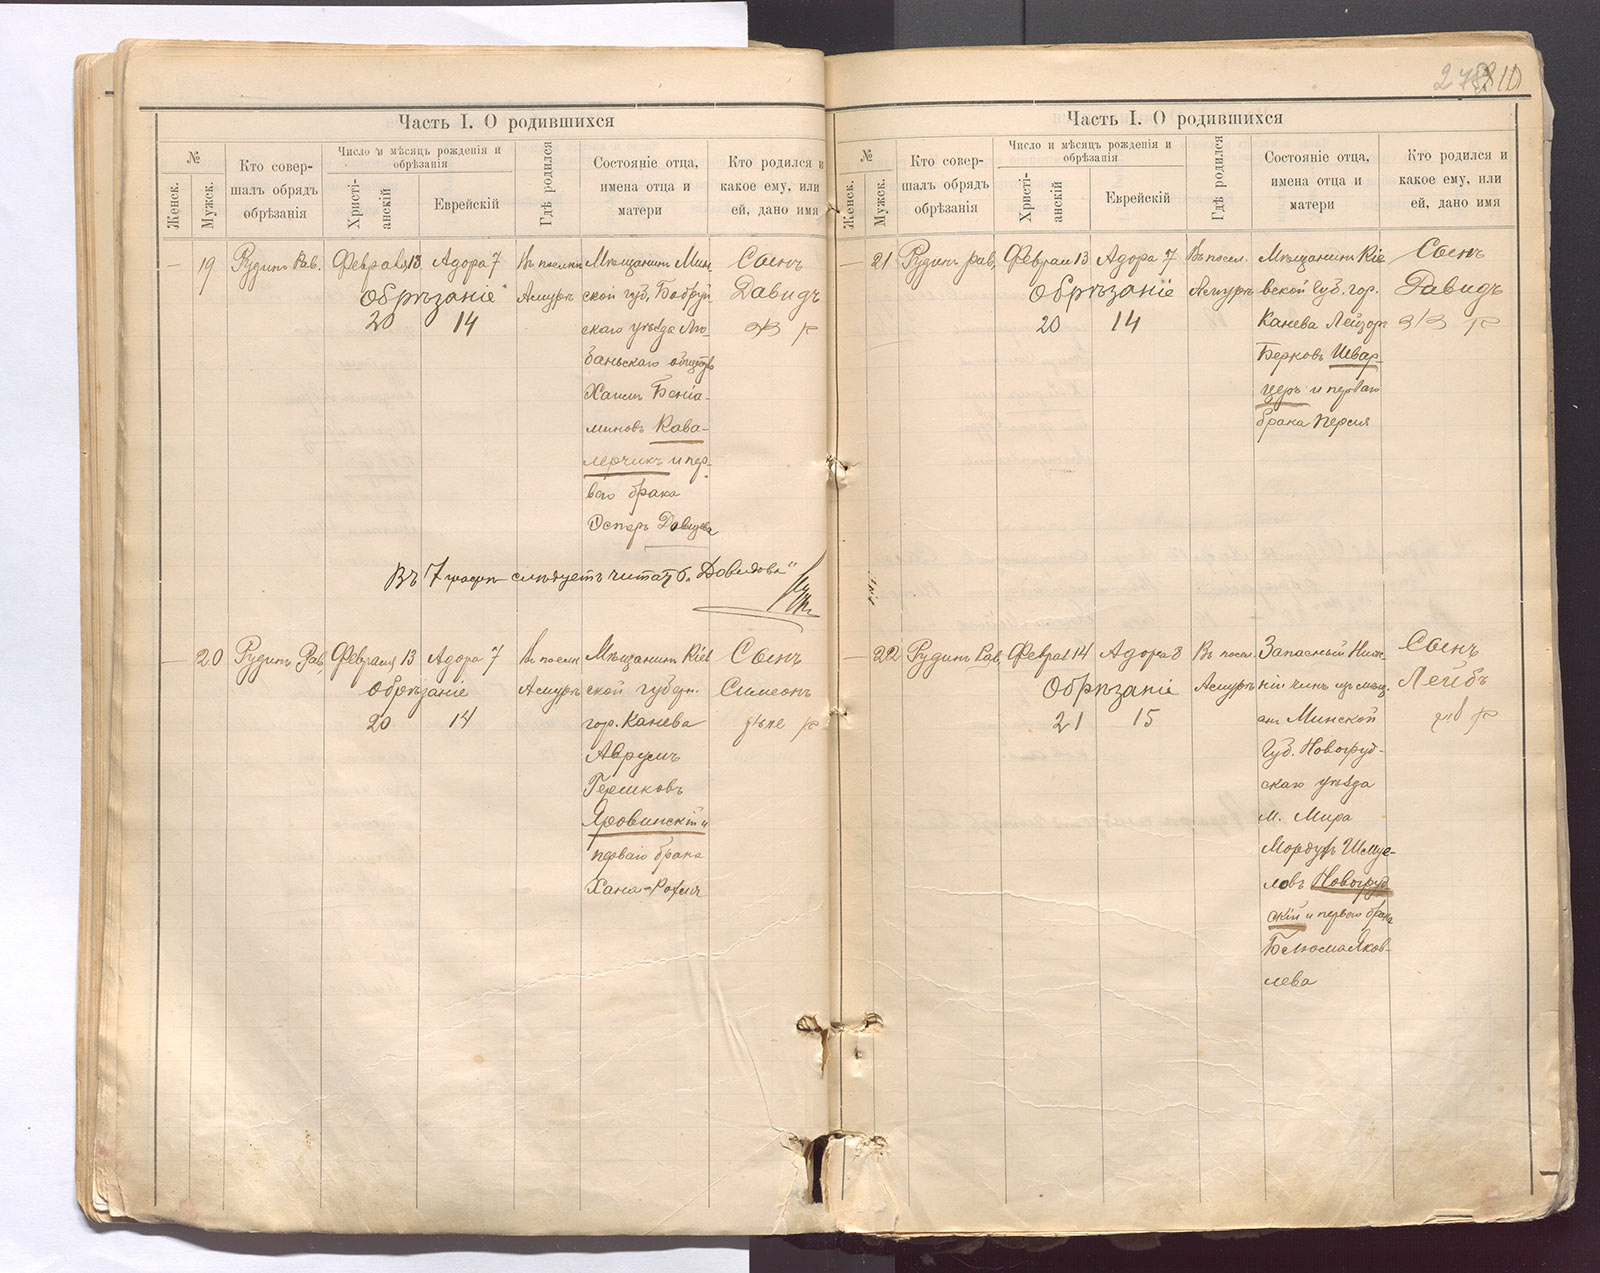 27810
Часть I. О родившихся
№
Женск.
Мужск.
Кто совер-
шалъ обрядъ
обрѣзанія
Число и мѣсяцъ рожденія и
обрѣзанія
Христі-
анскій
Еврейскій
Гдѣ родился
Состояніе отца,
имена отца и
матери
Кто родился и
какое ему, или
ей, дано имя
— 19
Рудинъ Рав.
Февраля 13
Адора 7
Обрѣзаніе
20 14
Въ поселкѣ
Асмуръ
Мѣщанинъ Мин
ской губ, Бобруй
скаго уѣзда Лю-
баньскаго общества
Хаимъ Беніа-
миновъ Кава-
лерчикъ и пер-
ваго брака
Эстеръ Довидова
Сынъ
Давидъ
Въ 7 графѣ слѣдуетъ читать „Довидова"
— 20
Рудинъ Рав,
Февраля 13
Адора 7
Обрѣзаніе
20 14
Въ поселк
Асмуръ
Мѣщанинъ Кіев
ской губерн.
гор. Канева
Аврумъ
Гершковъ
Яровинскій и
перваго брака
Хана-Рохля
Сынъ
Симеонъ
Часть I. О родившихся
№
Женск.
Мужск.
Кто совер-
шалъ обрядъ
обрѣзанія
Число и мѣсяцъ рожденія и
обрѣзанія
Христі-
анскій
Еврейскій
Гдѣ родился
Состояніе отца,
имена отца и
матери
Кто родился и
какое ему, или
ей, дано имя
— 21
Рудинъ рав,
Феврал 13
Адора 7
Обрѣзаніе
20 14
Въ посел.
Асмуръ
Мѣщанинъ Кіе
вской Губ. гор.
Канева Лейзоръ
Берковъ Швар-
церъ и перваго
брака Персия
Сынъ
Давидъ
— 22
Рудинъ Рав,
Феврал 14
Адора 8
Обрѣзаніе
21 15
Въ посел.
Асмуръ
Запасный Ниж
ній чинъ изъ мѣщ.
ан Минской
Губ. Новогруд-
скаго уѣзда
м. Мира
Мордухъ Шмуе-
ловъ Новогруд
скій и перваго брака
Белюма Яков-
лева
Сынъ
Лейбъ